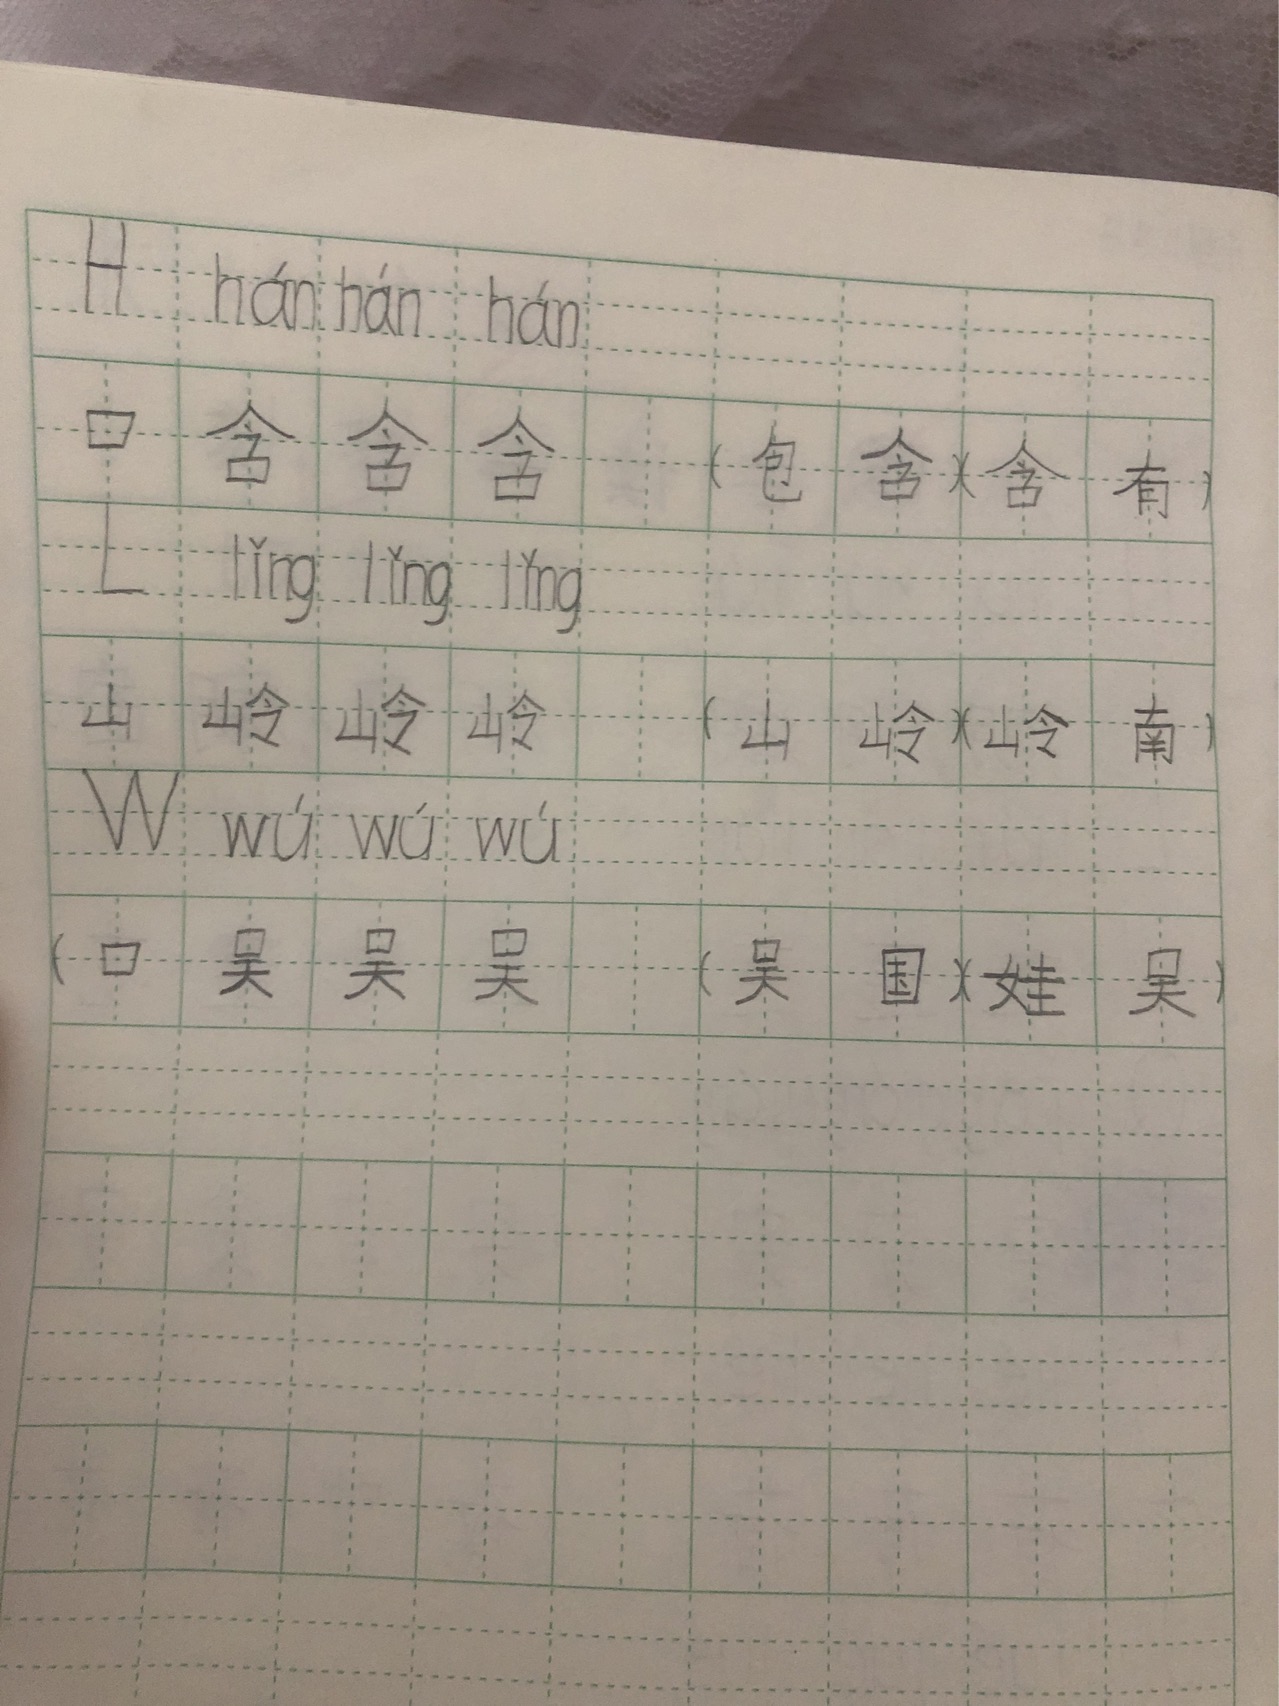 H hán hán hán
口 含 含 含 (包 含)(含 有)
L lǐng lǐng lǐng
山 岭 岭 岭 (山 岭)(岭 南)
W wú wú wú
(口 吴 吴 吴 (吴 国)(娃 吴)